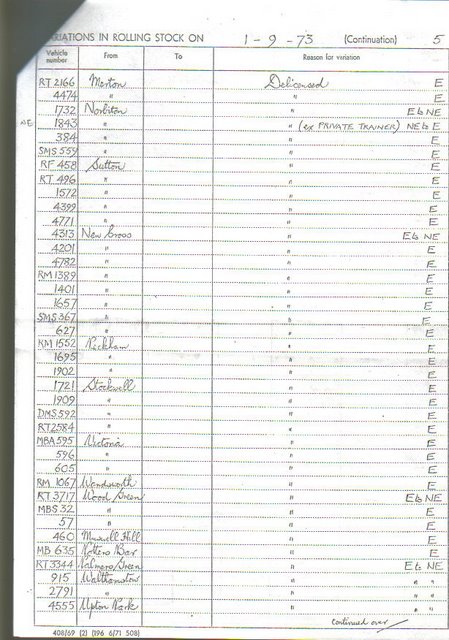 VARIATIONS IN ROLLING STOCK ON 1-9-73 (Continuation) 5
Vehicle number From To Reason for variation
RT 2166 Merton Delicensed E
4474 " " E
1732 Norbiton " E to NE
NE 1843 " " (ex PRIVATE TRAINER) NE to E
384 " " E
SMS 559 " " E
RF 458 Sutton " E
RT 496 " " E
1572 " " E
4399 " " E
4771 " " E
4313 New Cross " E to NE
4201 " " E
4782 " " E
RM 1389 " " E
1401 " " E
1657 " " E
SMS 367 " " E
627 " " E
RM 1552 Peckham " E
1695 " " E
1902 " " E
1721 Stockwell " E
1909 " " E
DMS 592 " " E
RT 2584 " " E
MBA 595 Victoria " E
596 " " E
605 " " E
RM 1067 Wandsworth " E
RT 3717 Wood Green " E to NE
MBS 32 " " E
57 " " E
460 Muswell Hill " E
MB 635 Potters Bar " E
RT 3344 Palmers Green " E to NE
915 Walthamstow " " "
2791 " " " "
4555 Upton Park " " "
continued over/
408/69 (2) (196 6/71 508)